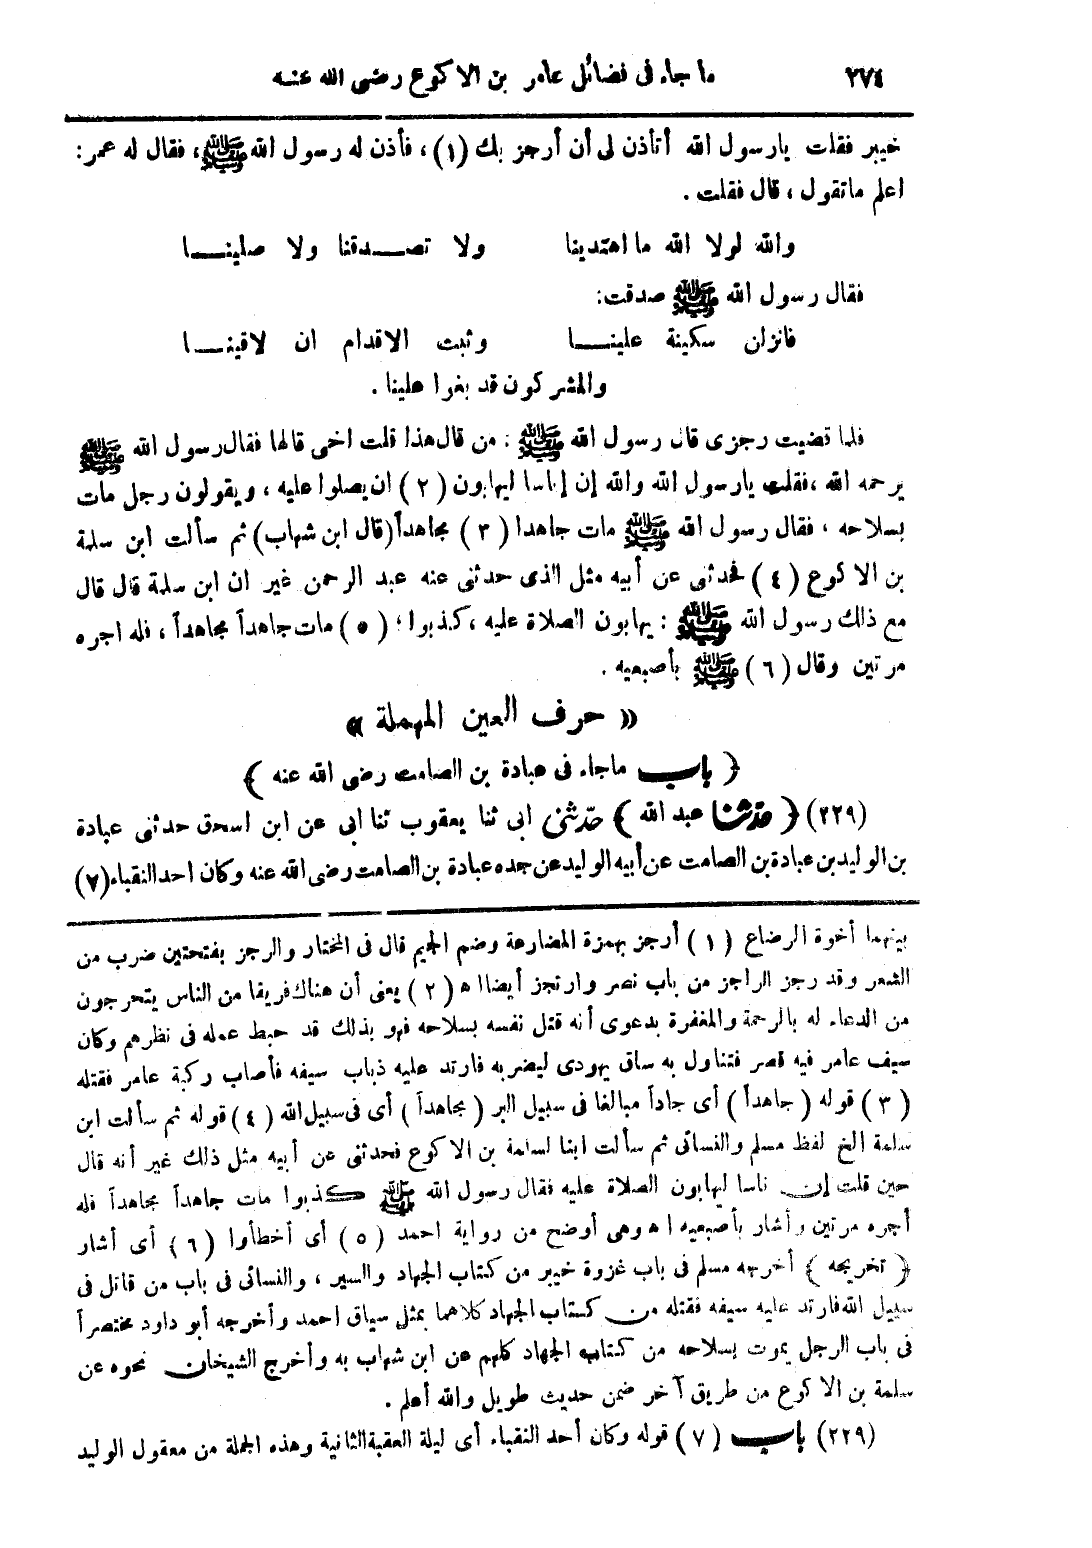 ٢٧٤ ما جاء فى فضائل عامر بن الاكوع رضى الله عنه
خيبر فقلت يارسول الله أتأذن لى أن أرجز بك (١) ، فأذن له رسول الله ﷺ ، فقال له عمر:
اعلم ماتقول ، قال فقلت .
والله لولا الله ما اهتدينا ولا تصـدقنا ولا صلينـا
فقال رسول الله ﷺ صدقت:
فانزلن سكينة علينـا وثبت الاقدام ان لاقينـا
والمشركون قد بغوا علينا .
فلما قضيت رجزى قال رسول الله ﷺ : من قال هذا قلت اخى قالها فقال رسول الله ﷺ
يرحمه الله ، فقلت يارسول الله والله إن إناسا ليهابون (٢) ان يصلوا عليه ، ويقولون رجل مات
بسلاحه ، فقال رسول الله ﷺ مات جاهدا (٣) مجاهداً (قال ابن شهاب) ثم سألت ابن سلمة
بن الاكوع (٤) فحدثنى عن أبيه مثل الذى حدثنى عنه عبد الرحمن غير ان ابن سلمة قال قال
مع ذلك رسول الله ﷺ : يهابون الصلاة عليه ، كذبوا ؛ (٥) مات جاهداً مجاهداً ، فله اجره
مرتين وقال (٦) ﷺ بأصبعيه .
« حرف العين المهملة »
﴿ باب ماجاء فى عبادة بن الصامت رضى الله عنه ﴾
(٢٢٩) ﴿ حدثنا عبد الله ﴾ حدّثنى ابى ثنا يعقوب ثنا ابى عن ابن اسحق حدثنى عبادة
بن الوليد بن عبادة بن الصامت عن أبيه الوليد عن جده عبادة بن الصامت رضى الله عنه وكان احد النقباء (٧)
بينهما أخوة الرضاع (١) أرجز بهمزة المضارعة وضم الجيم قال فى المختار والرجز بفتحتين ضرب من
الشعر وقد رجز الراجز من باب نصر وارتجز أيضا اه (٢) يعنى أن هناك فريقا من الناس يتحرجون
من الدعاء له بالرحمة والمغفرة بدعوى أنه قتل نفسه بسلاحه فهو بذلك قد حبط عمله فى نظرهم وكان
سيف عامر فيه قصر فتناول به ساق يهودى ليضربه فارتد عليه ذباب سيفه فأصاب ركبة عامر فقتله
(٣) قوله (جاهداً) أى جاداً مبالغا فى سبيل البر (مجاهداً) أى فى سبيل الله (٤) قوله ثم سألت ابن
سلمة الخ لفظ مسلم والنسائى ثم سألت ابنا لسلمة بن الاكوع فحدثنى عن أبيه مثل ذلك غير أنه قال
حين قلت إن ناسا ليهابون الصلاة عليه فقال رسول الله ﷺ كذبوا مات جاهداً مجاهداً فله
أجره مرتين وأشار بأصبعيه اه وهى أوضح من رواية احمد (٥) أى أخطأوا (٦) أى أشار
﴿ تخريجه ﴾ أخرجه مسلم فى باب غزوة خيبر من كتاب الجهاد والسير ، والنسائى فى باب من قاتل فى
سبيل الله فارتد عليه سيفه فقتله من كتاب الجهاد كلاهما بمثل سياق احمد وأخرجه أبو داود مختصراً
فى باب الرجل يموت بسلاحه من كتاب الجهاد كلهم عن ابن شهاب به وأخرج الشيخان نحوه عن
سلمة بن الاكوع من طريق آخر ضمن حديث طويل والله أعلم .
(٢٢٩) باب (٧) قوله وكان أحد النقباء أى ليلة العقبة الثانية وهذه الجملة من معقول الوليد